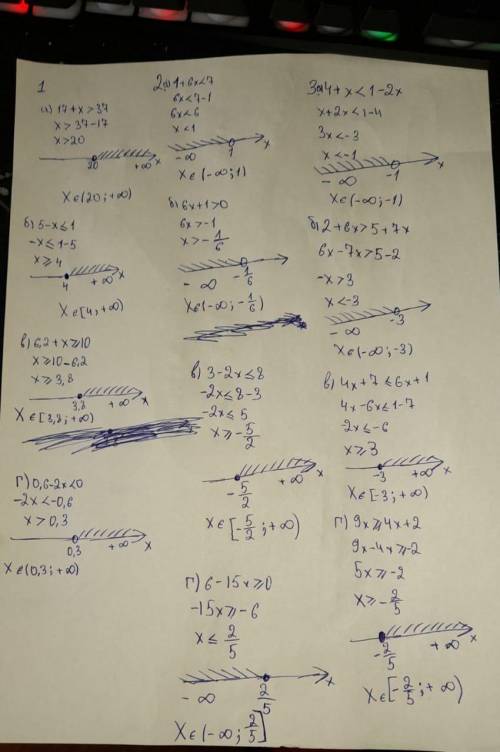 1
а) 17+x>37
x>37-17
x>20
20 +∞ x
x∈(20;+∞)
б) 5-x≤1
-x≤1-5
x≥4
4 +∞ x
x∈[4;+∞)
в) 6,2+x≥10
x≥10-6,2
x≥3,8
3,8 +∞ x
x∈[3,8;+∞)
г) 0,6-2x<0
-2x<-0,6
x>0,3
0,3 +∞ x
x∈(0,3;+∞)
2 а) 1+6x<7
6x<7-1
6x<6
x<1
-∞ 1 x
x∈(-∞;1)
б) 6x+1>0
6x>-1
x>-1/6
-∞ -1/6
x∈(-∞;-1/6)
в) 3-2x≤8
-2x≤8-3
-2x≤5
x≥-5/2
-5/2 +∞ x
x∈[-5/2;+∞)
г) 6-15x≥0
-15x≥-6
x≤2/5
-∞ 2/5 x
x∈(-∞;2/5]
3 а) 4+x<1-2x
x+2x<1-4
3x<-3
x<-1
-∞ -1 x
x∈(-∞;-1)
б) 2+6x>5+7x
6x-7x>5-2
-x>3
x<-3
-∞ -3 x
x∈(-∞;-3)
в) 4x+7≤6x+1
4x-6x≤1-7
-2x≤-6
x≥3
-3 +∞ x
x∈[-3;+∞)
г) 9x≥4x+2
9x-4x≥-2
5x≥-2
x≥-2/5
-2/5 +∞ x
x∈[-2/5;+∞)